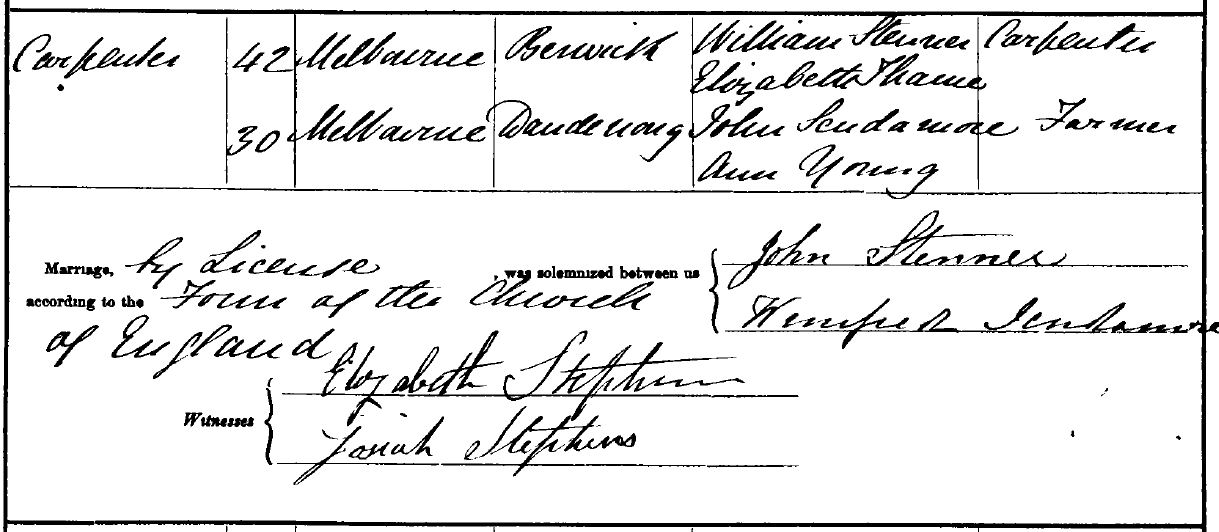 Carpenter 42 Melbourne Berwick William Stenner Carpenter
Elizabeth Thame
30 Melbourne Dandenong John Scudamore Farmer
Ann Young
Marriage, by License, was solemnized between us John Stenner
according to the Form of the Church Winifred Scudamore
of England
Elizabeth Stephens
Witnesses
Josiah Stephens